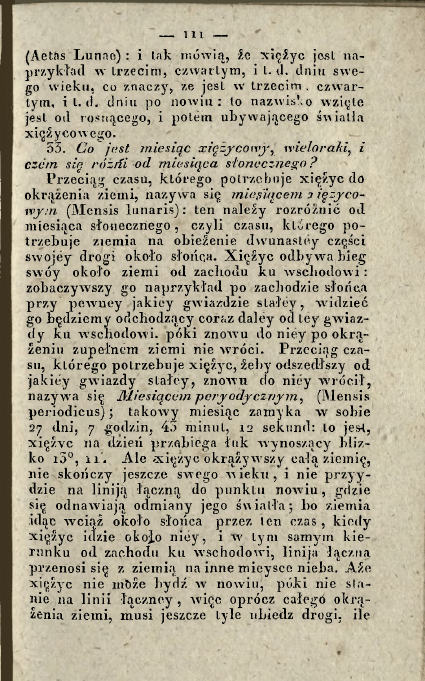 — 111 —
(Aetas Lunae) : i tak mówią, że xiężyc jest na-
przykład w trzecim, czwartym, i t. d. dniu swe-
go wieku, co znaczy, że jest w trzecim, czwar-
tym, i t. d. dniu po nowiu : to nazwisko wzięte
jest od rosnącego, i potém ubywającego światła
xiężycowego.
33. Co jest miesiąc xiężycowy, wieloraki, i
czém się różni od miesiąca słonecznego?
Przeciąg czasu, którego potrzebuje xiężyc do
okrążenia ziemi, nazywa się miesiącem xiężyco-
wym (Mensis lunaris) : ten należy rozróżnić od
miesiąca słonecznego , czyli czasu, którego po-
trzebuje ziemia na obieżenie dwunastéy części
swojéy drogi około słońca. Xiężyc odbywa bieg
swóy około ziemi od zachodu ku wschodowi :
zobaczywszy go naprzykład po zachodzie słońca
przy pewney jakiéy gwiazdzie stałéy , widzieć
go będziemy odchodzący coraz daléy od téy gwiaz-
dy ku wschodowi. póki znowu do niéy po okrą-
żeniu zupełném ziemi nie wróci. Przeciąg cza-
su, którego potrzebuje xiężyc, żeby odszedłszy od
jakiéy gwiazdy stałéy, znowu do niéy wrócił,
nazywa się Miesiącem peryodycznym, (Mensis
periodicus) ; takowy miesiąc zamyka w sobie
27 dni, 7 godzin, 43 minut, 12 sekund: to jest,
xiężyc na dzień przebiega łuk wynoszący bliz-
ko 13°, 11'. Ale xiężyc okrążywszy całą ziemię,
nie skończy jeszcze swego wieku , i nie przyy-
dzie na liniją łączną do punktu nowiu , gdzie
się odnawiają odmiany jego światła ; bo ziemia
idąc wciąż około słońca przez ten czas , kiedy
xiężyc idzie około niéy , i w tym samym kie-
runku od zachodu ku wschodowi, linija łączna
przenosi się z ziemią na inne mieysce nieba. Aże
xiężyc nie może bydź w nowiu, póki nie sta-
nie na linii łączney , więc oprócz całego okrą-
żenia ziemi, musi jeszcze tyle ubiedz drogi, ile